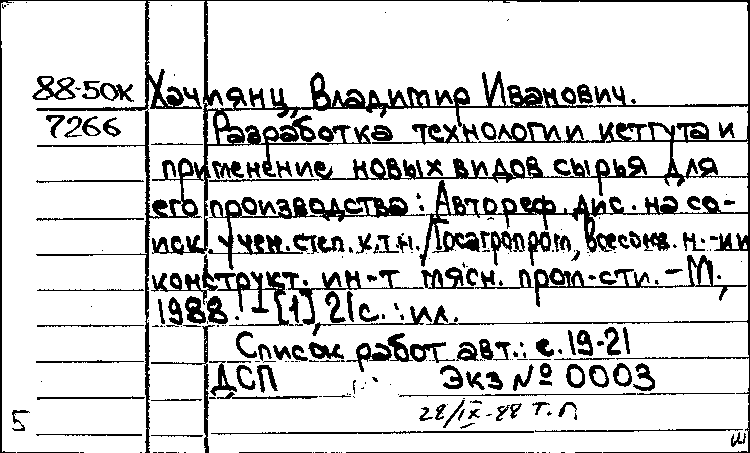 88-50к Хачиянц, Владимир Иванович.
7266 Разработка технологии кетгута и
применение новых видов сырья для
его производства: Автореф. дис. на со-
иск. учен. степ. к.т.н. / Госагропром, Всесоюз. н.-и и
конструкт. ин-т мясн. пром-сти. - М.,
1988. - [1], 21 с. : ил.
Список работ авт.: с. 19-21
ДСП Экз № 0003
28/IX-88 т. П
5
ш